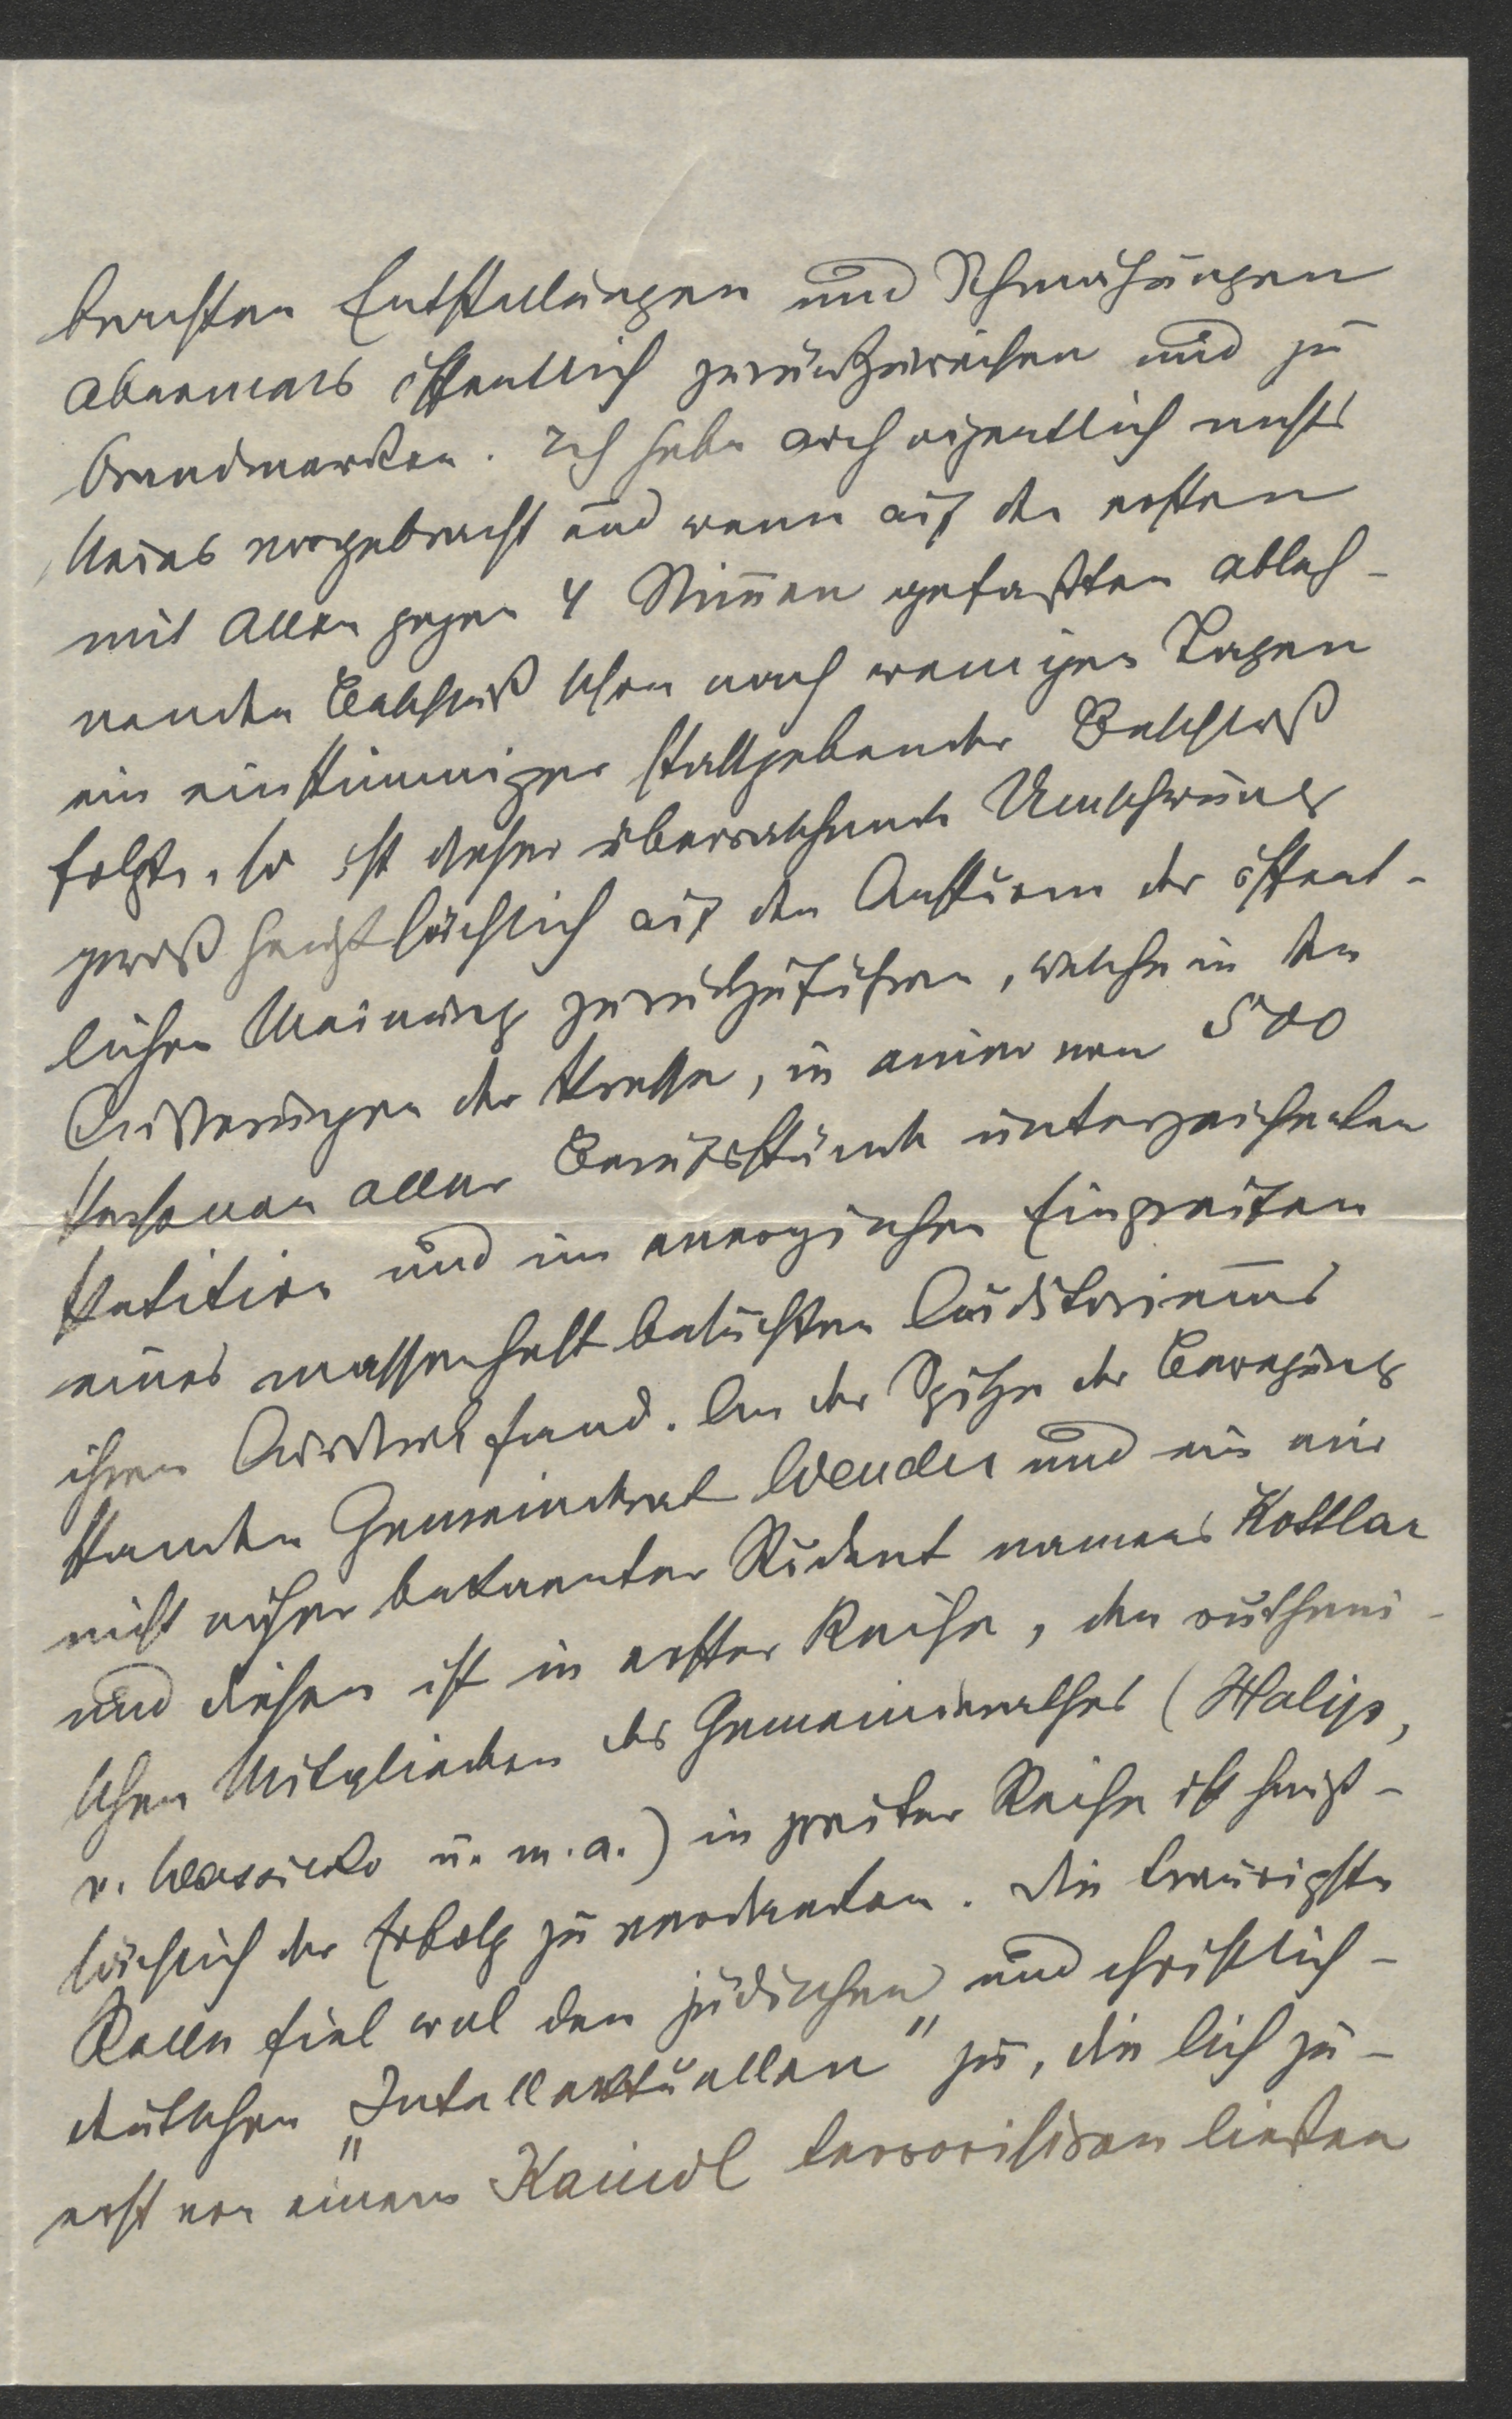 brachten Entstellungen und Schmähungen
abermals öffentlich zurückzuweisen und zu
brandmarken. Ich habe auch eigentlich nichts
Neues vorgebracht und wenn auf den ersten
mit allen gegen 4 Stimmen gefaßten ableh-
nenden Beschluß schon nach wenigen Tagen
ein einstimmiger stattgebender Beschluß
folgte, so ist dieser überraschende Umschwung
gewiß hauptsächlich auf den Ansturm der öffent-
lichen Meinung zurückzuführen, welche in den
Äußerungen der Presse, in einer von 500
Personen aller Berufsstände unterzeichneten
Petition und im energischen Eingreifen
eines massenhaft besuchten Auditoriums
ihren Ausdruck fand. An der Spitze der Bewegung
standen Gemeinderat Wender und ein mir
nicht näher bekannter Student namens Kottlar
und diesen ist in erster Reihe, den rutheni-
schen Mitgliedern des Gemeinderathes (Halip,
v. Wassilko u. m. a.) in zweiter Reihe ist haupt-
sächlich der Erfolg zu verdanken. Die traurigste
Rolle fiel wol den jüdischen und christlich-
deutschen „Intellektuellen" zu, die sich zu-
erst von einem Kaindl terrorisiren ließen